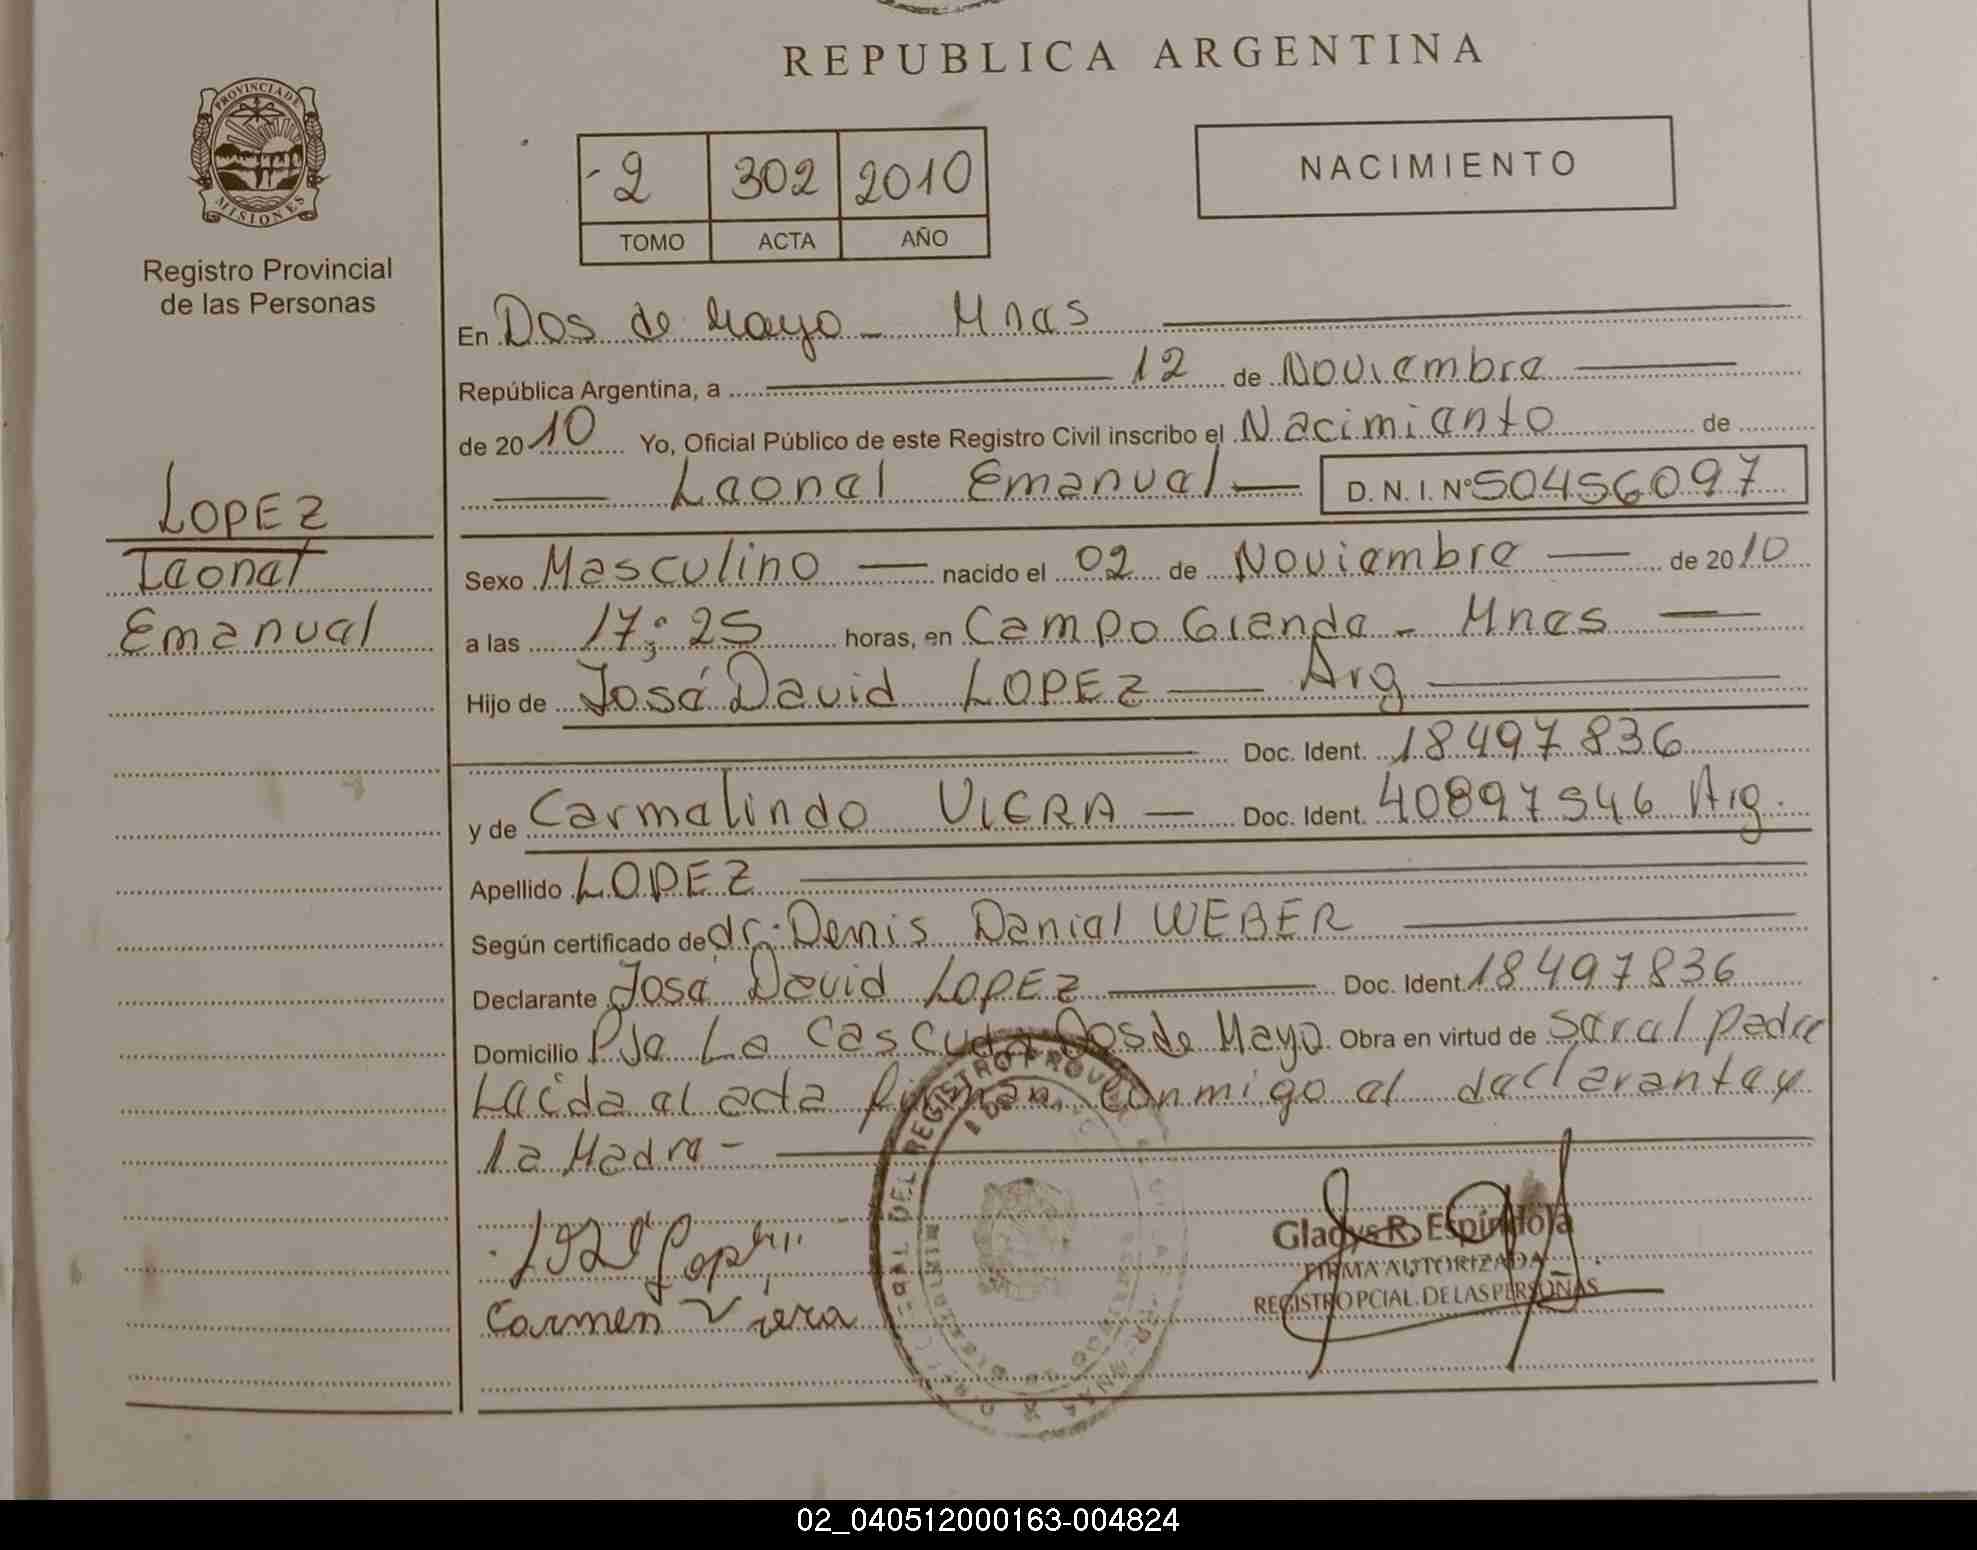 REPUBLICA ARGENTINA
PROVINCIA DE MISIONES
Registro Provincial
de las Personas
2 302 2010
TOMO ACTA AÑO
NACIMIENTO
En Dos de Mayo - Mnes
República Argentina, a 12 de Noviembre
de 2010 Yo, Oficial Público de este Registro Civil inscribo el Nacimiento de
Leonel Emanuel D. N. I. Nº 50456097
LOPEZ
Leonel
Emanuel
Sexo Masculino nacido el 02 de Noviembre de 2010
a las 17:25 horas, en Campo Grande - Mnes
Hijo de José David LOPEZ Arg
Doc. Ident. 18497836
y de Carmelinda VIERA Doc. Ident. 40897546 Arg.
Apellido LOPEZ
Según certificado de dr. Denis Daniel WEBER
Declarante José David LOPEZ Doc. Ident. 18497836
Domicilio Pje La Cascuda Dos de Mayo Obra en virtud de Ser el Padre
Leida el acta firman conmigo el declarante y
la Madre -
Carmen Viera
Gladys R. Espíndola
FIRMA AUTORIZADA
REGISTRO PCIAL. DE LAS PERSONAS
02_040512000163-004824